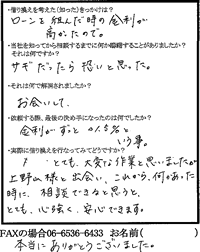 ・借り換えを考えた（知った）きっかけは？
ローンを組んだ時の金利が
高かたので。
・当社を知ってから相談するまでに何か躊躇することがありましたか？
それは何ですか？
サギだったら恐いと思った。
・それは何で解消されましたか？
お会いして、
・依頼する際、最後の決め手になったのは何でしたか？
金利がずっと
いう事。
・実際に借り換えを行なってみてどうですか？
とても大変な作業と思いましたが
上野山様と出会い、これから、何かあった
時に、相談できると思うと、
とても、心強く、安心できます。
FAXの場合06-6536-6433 お名前（ ）
本当にありがとうございました。